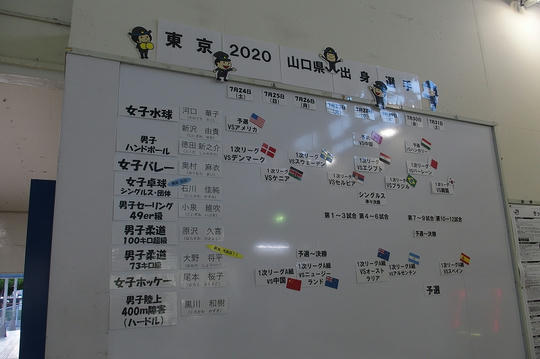 東京 2020 山口県 出身 選手
7月24日
(土)
7月25日
(日)
7月26日
(月)
7月30日
7月31日
(土)
女子水球
河口 華子
予選
VSアメリカ
男子
ハンドボール
新沢 由貴
徳田 新之介
1次リーグ
VSデンマーク
1次リーグ
VSスウェーデン
1次リーグ
VSエジプト
1次リーグ
VSバーレーン
女子バレー
奥村 麻衣
1次リーグ
VSケニア
1次リーグ
VSセルビア
1次リーグ
VSブラジル
1次リーグ
女子卓球
シングルス・団体
石川 佳純
シングルス
男子セーリング
49er級
小泉 維吹
第1～3試合
第4～6試合
第7～9試合
第10～12試合
男子柔道
100キロ超級
原沢 久喜
予選～決勝
男子柔道
73キロ級
大野 将平
予選～決勝
女子ホッケー
尾本 桜子
1次リーグA組
VS中国
1次リーグA組
VSニュージー
ランド
1次リーグA組
VSオースト
ラリア
1次リーグA組
VSアルゼンチン
1次リーグA組
VSスペイン
男子陸上
400m障害
(ハードル)
黒川 和樹
予選